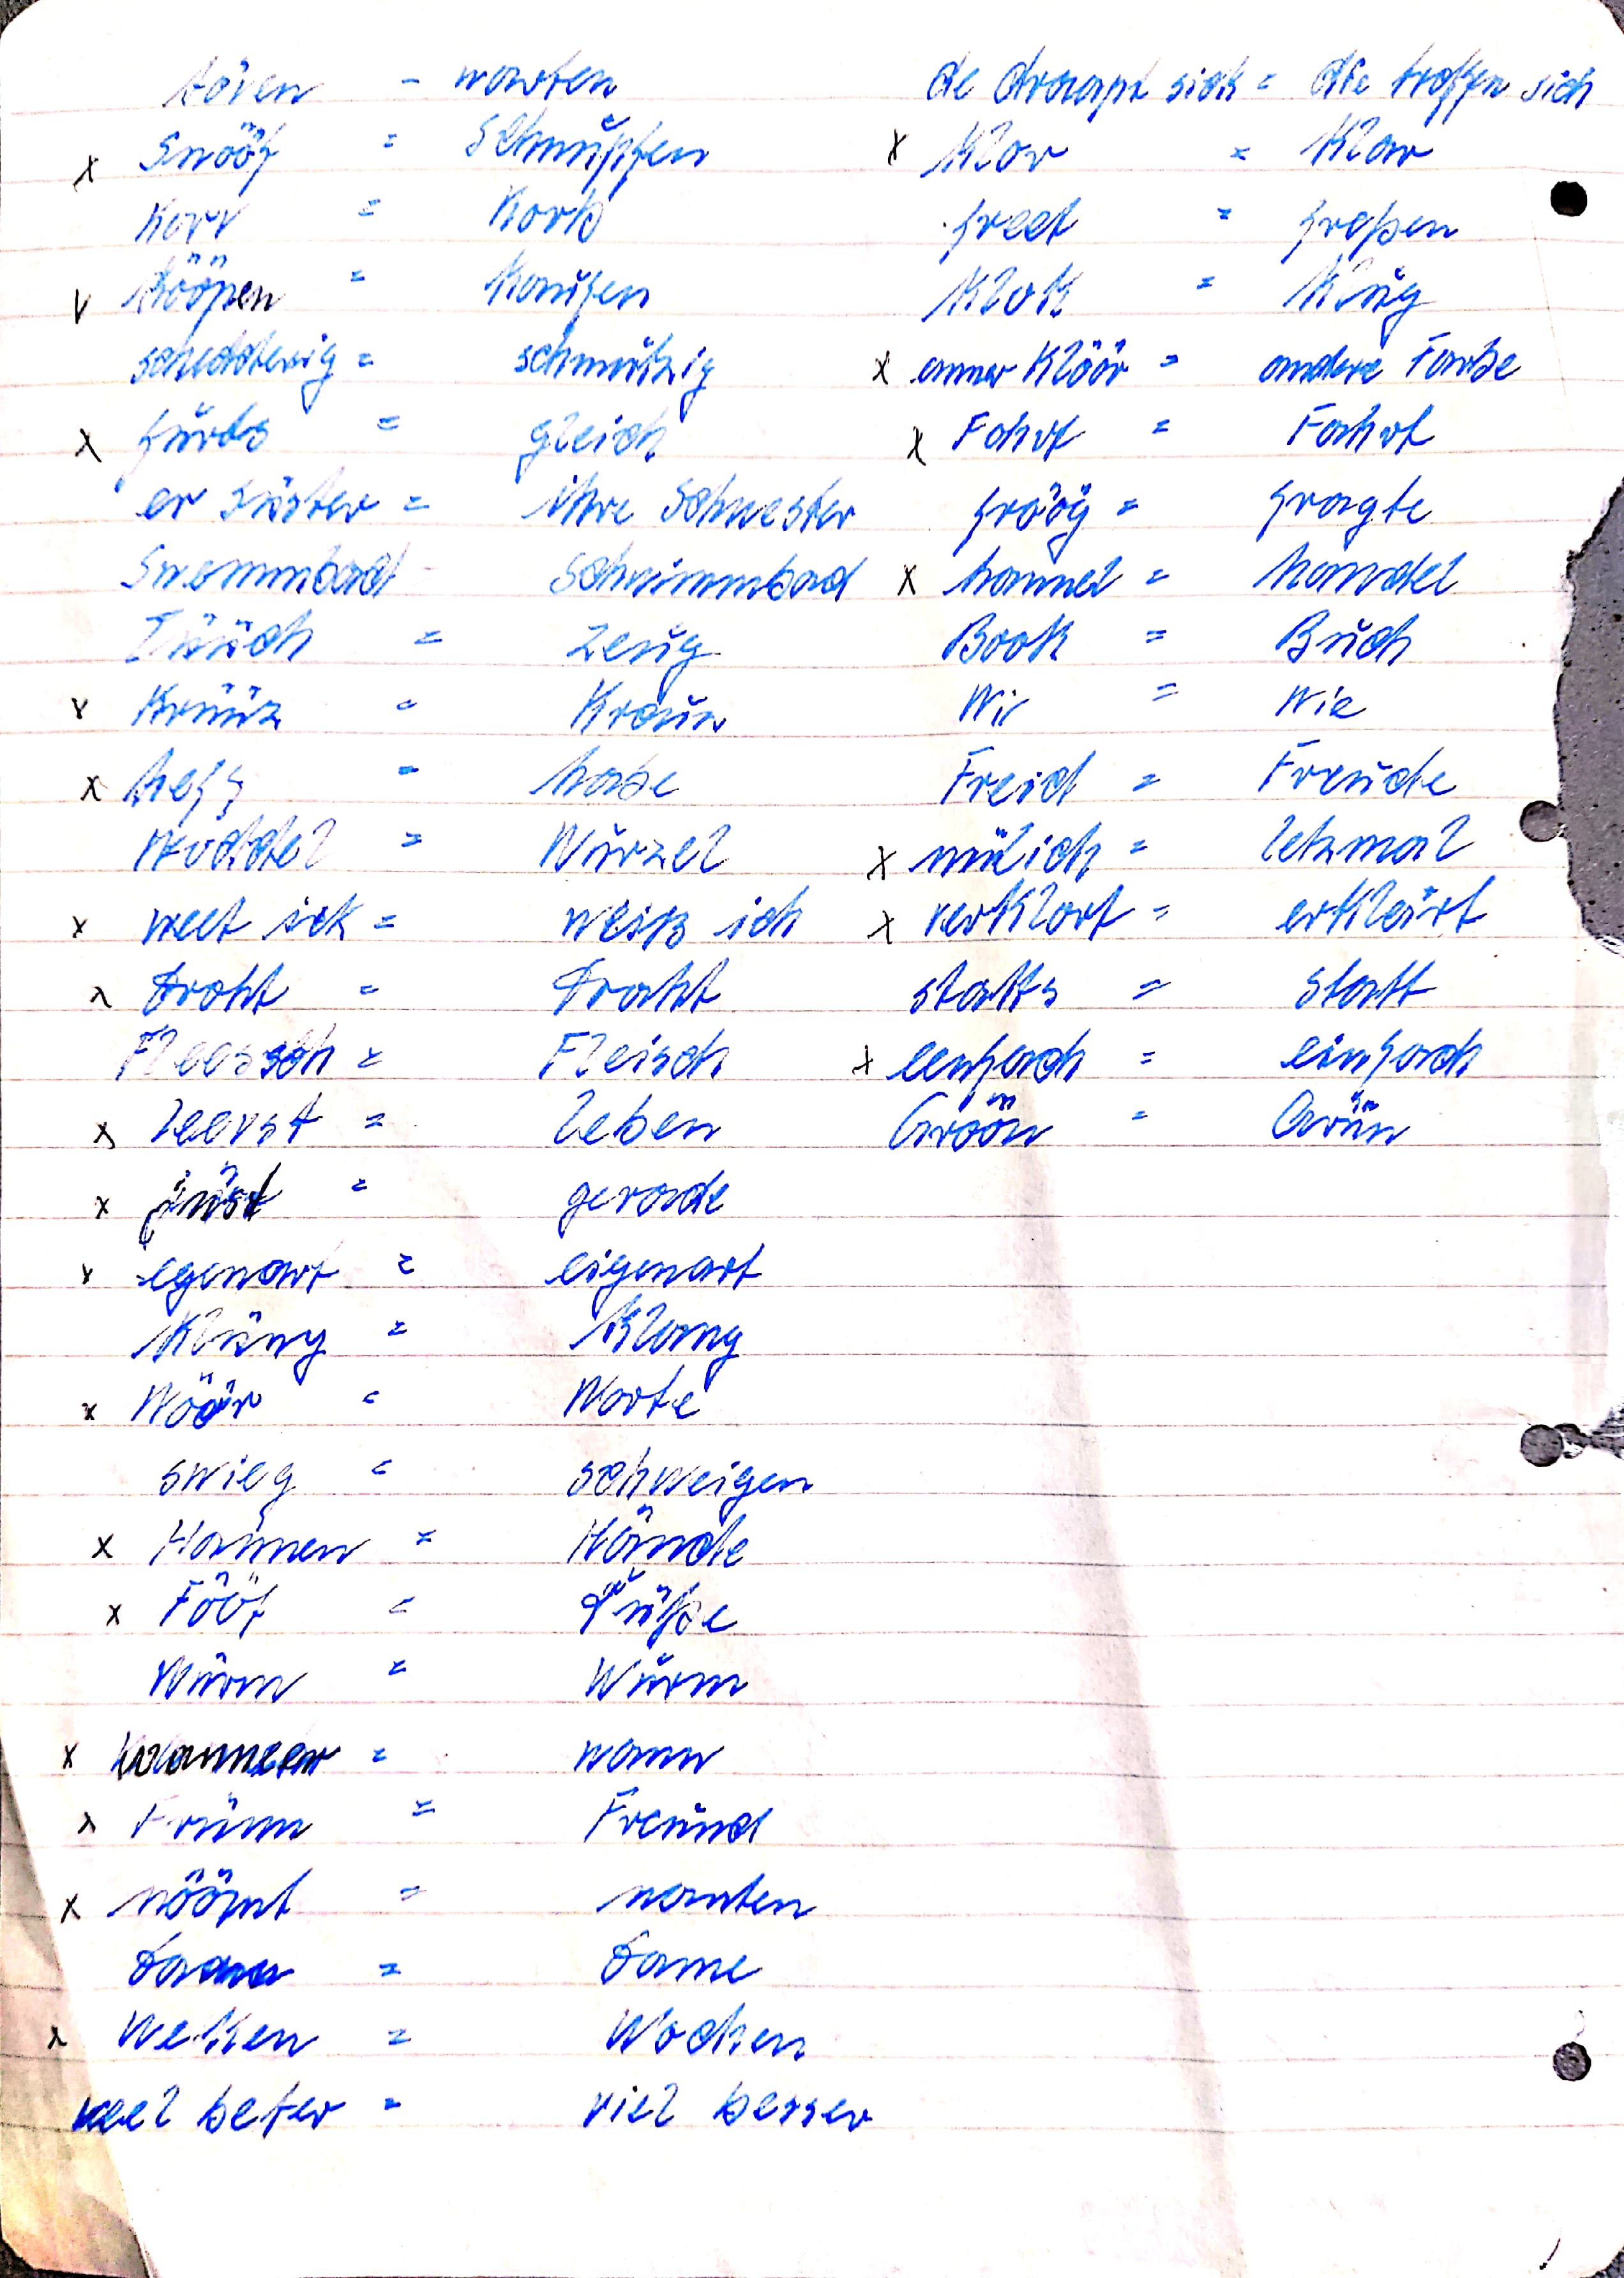 töven - warten
x Snööf = Schnupfen
Korv = Korb
v köpen = Kaufen
schedderig = schmutzig
x furts = gleich
er Süster = ihre Schwester
Swemmbad - Schwimmbad
Tüüch = Zeug
x Krüüz = Kreuz
x heff = habe
Wuddel = Wurzel
x weet ick = weiß ich
x Droht = Draht
Fleessch = Fleisch
x leevst = leben
x jüst = gerade
x egenart = eigenart
Kläng = Klang
x Wöör = Worte
swieg = schweigen
x Hannen = Hände
x Fööt = Füße
Wurm = Wurm
x wanneer = wann
x Frünn = Freund
x nöömt = nanten
= Dame
x Weken = Wochen
veel beter = viel besser
de draapt sick = die treffen sich
x Klor = Klar
freet = freßen
Klok = Klug
x anner Klöör = andere Farbe
x Fohrt = Fahrt
fröög = fragte
x hannel = handel
Book = Buch
Wi = Wie
Freid = Freude
x nülich = letzmal
x verklort = erklärt
statts = statt
x eenfach = einfach
Gröön = Grün